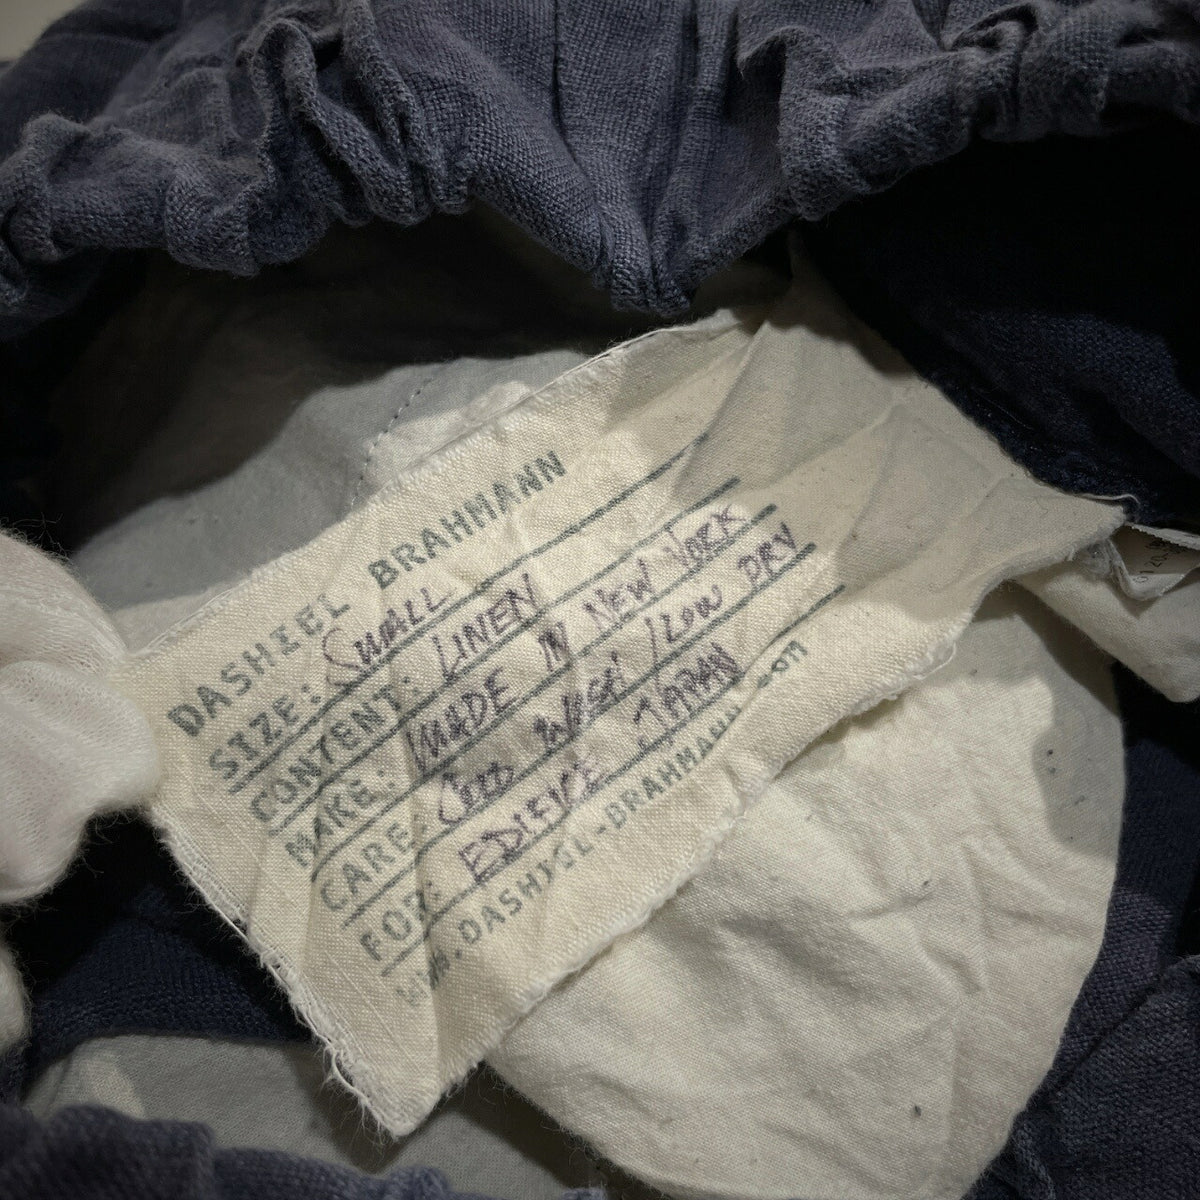 DASHIEL BRAHMANN
SIZE: SMALL
CONTENT: LINEN
MAKE: MADE IN NEW YORK
CARE: COLD WASH / LOW DRY
FOR: EDIFICE JAPAN
WWW.DASHIEL-BRAHMANN.COM